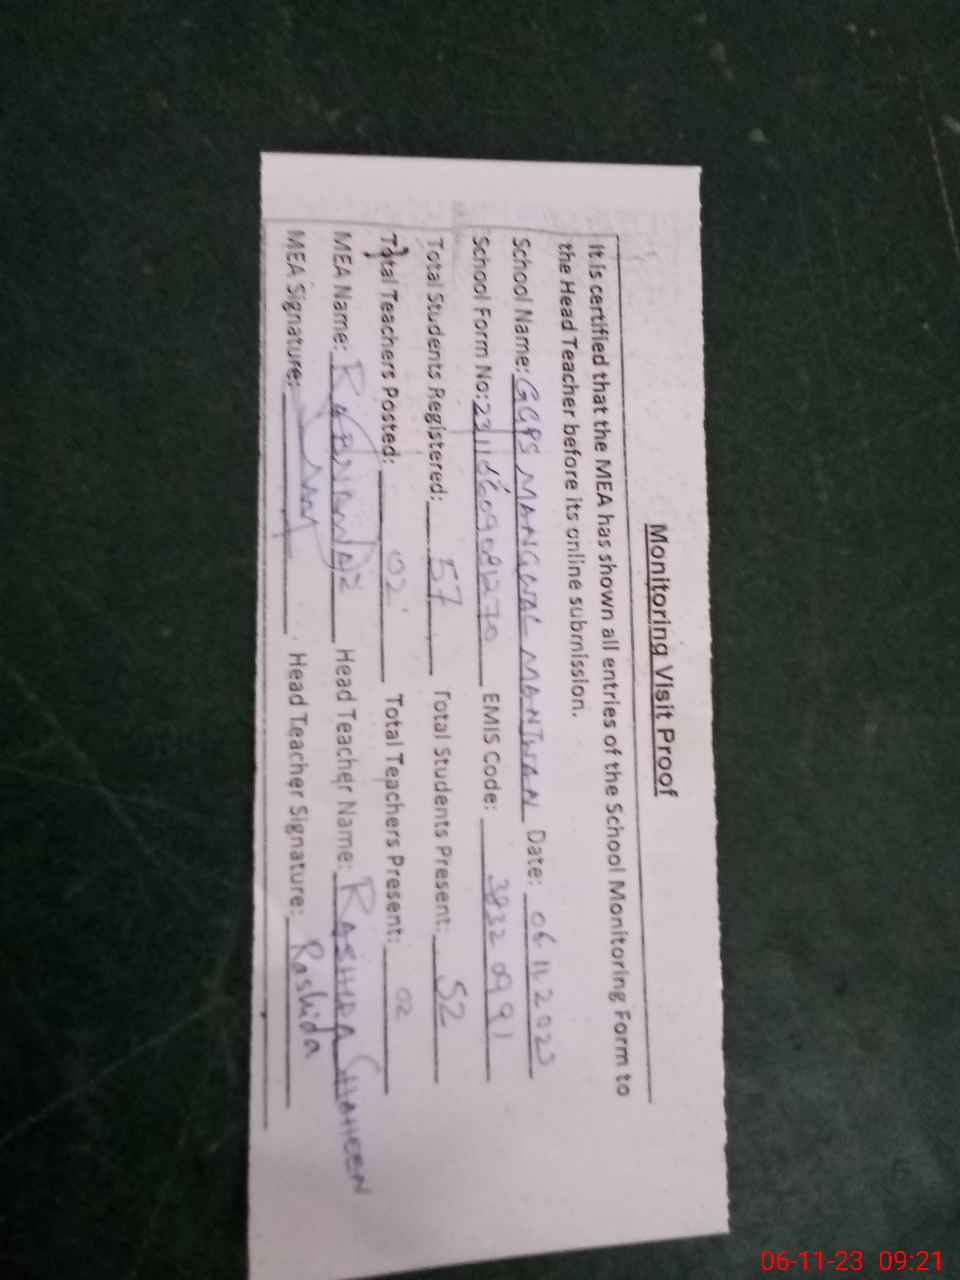 Monitoring Visit Proof
It is certified that the MEA has shown all entries of the School Monitoring Form to
the Head Teacher before its online submission.
School Name: GGPS MANGWAL MANTWAN Date: 06.11.2023
School Form No: EMIS Code: 38320991
Total Students Registered: 57 Total Students Present: 52
Total Teachers Posted: 02 Total Teachers Present: 02
MEA Name: Head Teacher Name: RASHIDA SHAHEEN
MEA Signature: Head Teacher Signature: Rashida
06-11-23 09:21